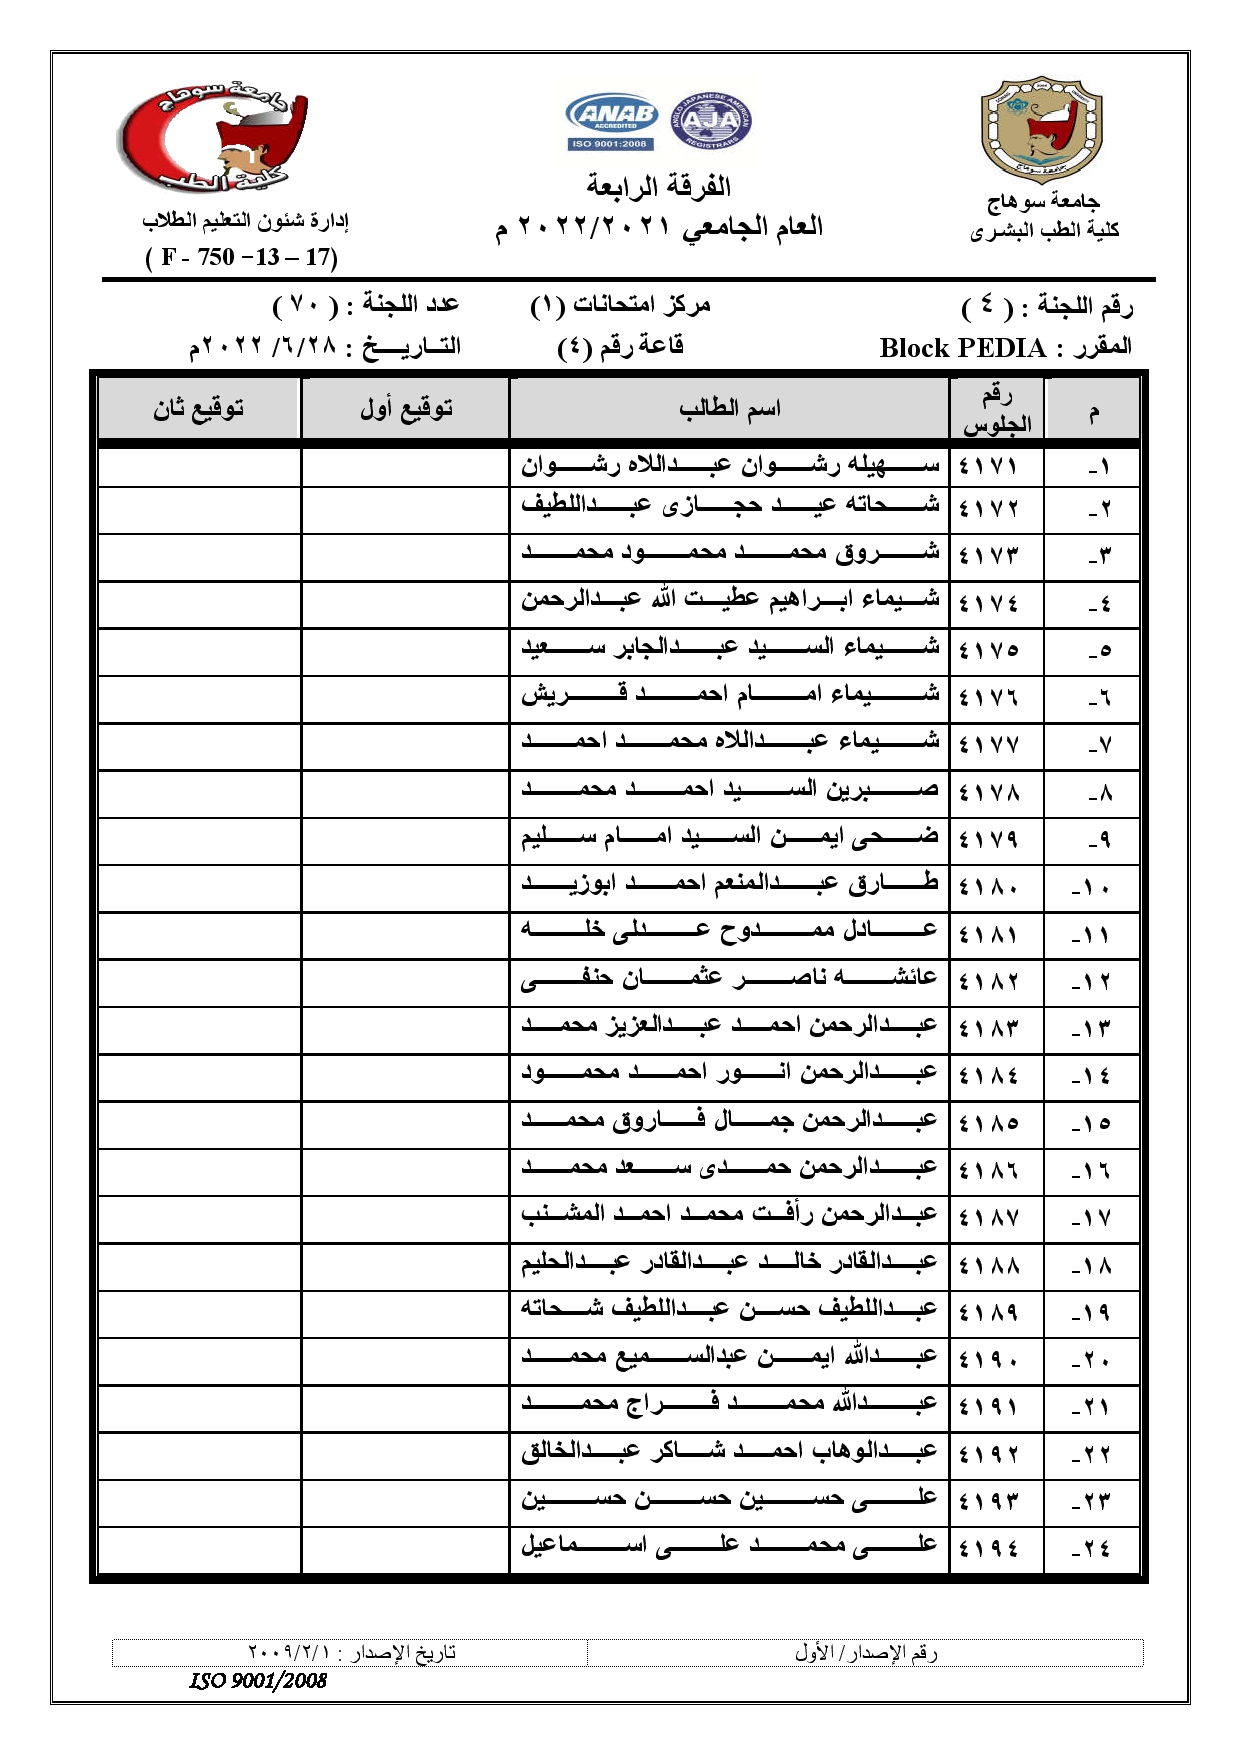 جامعة سوهاج
كلية الطب
ANAB
ACCREDITED
ISO 9001:2008
ANGLO JAPANESE AMERICAN
AJA
REGISTRARS
جامعة سوهاج
جامعة سوهاج
كلية الطب البشرى
الفرقة الرابعة
العام الجامعي ٢٠٢٢/٢٠٢١ م
إدارة شئون التعليم الطلاب
( F - 750 –13 – 17)
رقم اللجنة : ( ٤ ) مركز امتحانات (١) عدد اللجنة : ( ٧٠ )
المقرر : Block PEDIA قاعة رقم (٤) التــاريــــخ : ٦/٢٨/ ٢٠٢٢م
م رقم الجلوس اسم الطالب توقيع أول توقيع ثان
١- ٤١٧١ سهيله رشوان عبداللاه رشوان
٢- ٤١٧٢ شحاته عيد حجازى عبداللطيف
٣- ٤١٧٣ شروق محمد محمود محمد
٤- ٤١٧٤ شيماء ابراهيم عطيت الله عبدالرحمن
٥- ٤١٧٥ شيماء السيد عبدالجابر سعيد
٦- ٤١٧٦ شيماء امام احمد قريش
٧- ٤١٧٧ شيماء عبداللاه محمد احمد
٨- ٤١٧٨ صبرين السيد احمد محمد
٩- ٤١٧٩ ضحى ايمن السيد امام سليم
١٠- ٤١٨٠ طارق عبدالمنعم احمد ابوزيد
١١- ٤١٨١ عادل ممدوح عدلى خله
١٢- ٤١٨٢ عائشه ناصر عثمان حنفى
١٣- ٤١٨٣ عبدالرحمن احمد عبدالعزيز محمد
١٤- ٤١٨٤ عبدالرحمن انور احمد محمود
١٥- ٤١٨٥ عبدالرحمن جمال فاروق محمد
١٦- ٤١٨٦ عبدالرحمن حمدى سعد محمد
١٧- ٤١٨٧ عبدالرحمن رأفت محمد احمد المشنب
١٨- ٤١٨٨ عبدالقادر خالد عبدالقادر عبدالحليم
١٩- ٤١٨٩ عبداللطيف حسن عبداللطيف شحاته
٢٠- ٤١٩٠ عبدالله ايمن عبدالسميع محمد
٢١- ٤١٩١ عبدالله محمد فراج محمد
٢٢- ٤١٩٢ عبدالوهاب احمد شاكر عبدالخالق
٢٣- ٤١٩٣ على حسين حسن حسين
٢٤- ٤١٩٤ على محمد على اسماعيل
رقم الإصدار/ الأول تاريخ الإصدار : ٢٠٠٩/٢/١
ISO 9001/2008